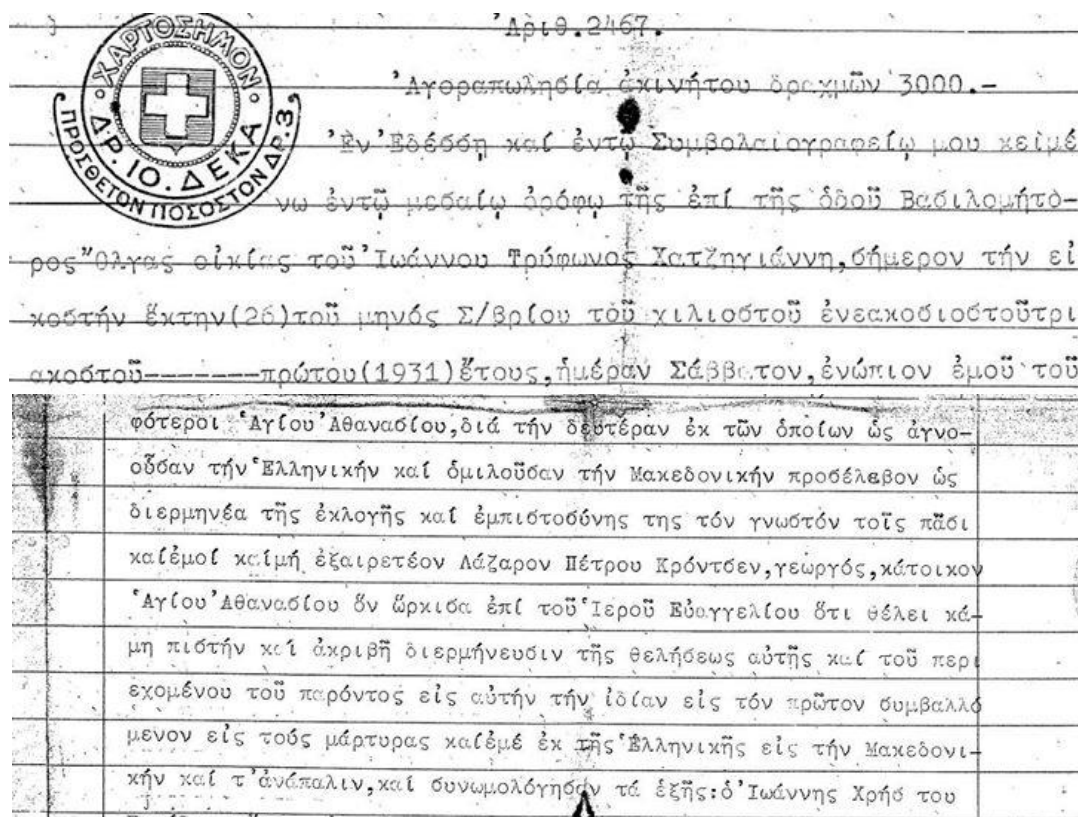 Ἀριθ.2467.
ΧΑΡΤΟΣΗΜΟΝ
ΔΡ. ΙΟ. ΔΕΚΑ
ΠΡΟΣΘΕΤΟΝ ΠΟΣΟΣΤΟΝ ΔΡ.3
Ἀγοραπωλησία ἀκινήτου δραχμῶν 3000.-
Ἐν Ἐδέσσῃ καί ἐντῷ Συμβολαιογραφείῳ μου κειμέ
νω ἐντῷ μεσαίῳ ὀρόφῳ τῆς ἐπί τῆς ὁδοῦ Βασιλομήτο-
ρος Ὄλγας οἰκίας τοῦ Ἰωάννου Τρύφωνος Χατζηγιάννη,σήμερον τήν εἰ
κοστήν ἕκτην(26)τοῦ μηνός Σ/βρίου τοῦ χιλιοστοῦ ἐνεακοσιοστοῦτρι
ακοστοῦ-------πρώτου(1931)ἔτους,ἡμέραν Σάββατον,ἐνώπιον ἐμοῦ τοῦ
φότεροι Ἁγίου Ἀθανασίου,διά τήν δευτέραν ἐκ τῶν ὁποίων ὡς ἀγνο-
οῦσαν τήν Ἑλληνικήν καί ὁμιλοῦσαν τήν Μακεδονικήν προσέλαβον ὡς
διερμηνέα τῆς ἐκλογῆς καί ἐμπιστοσύνης της τόν γνωστόν τοῖς πᾶσι
καίἐμοί καίμή ἐξαιρετέον Λάζαρον Πέτρου Κρόντσεν,γεωργός,κάτοικον
Ἁγίου Ἀθανασίου ὅν ὥρκισα ἐπί τοῦ Ἱεροῦ Εὐαγγελίου ὅτι θέλει κά-
μη πιστήν καί ἀκριβῆ διερμήνευσιν τῆς θελήσεως αὐτῆς καί τοῦ περι
εχομένου τοῦ παρόντος εἰς αὐτήν τήν ἰδίαν εἰς τόν πρῶτον συμβαλλό
μενον εἰς τούς μάρτυρας καίἐμέ ἐκ τῆς Ἑλληνικῆς εἰς τήν Μακεδονι-
κήν καί τ'ἀνάπαλιν,καί συνωμολόγησαν τά ἑξῆς:ὁ Ἰωάννης Χρήσ του